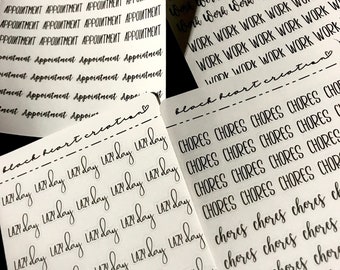 APPOINTMENT APPOINTMENT APPOINTMENT
APPOINTMENT APPOINTMENT APPOINTMENT
Appointment Appointment Appointment
Appointment Appointment Appointment
Appointment Appointment Appointment
Work Work Work
WORK WORK WORK
WORK WORK WORK WORK
WORK WORK WORK WORK
black heart creation
LAZY day LAZY day LAZY day LAZY day
LAZY day LAZY day LAZY day LAZY day
LAZY day LAZY day LAZY day LAZY day
LAZY day LAZY day LAZY day LAZY day
black heart creation
CHORES CHORES CHORES CHORES
CHORES CHORES CHORES CHORES
CHORES CHORES CHORES CHORES
CHORES CHORES CHORES CHORES
chores chores chores chores
chores chores chores